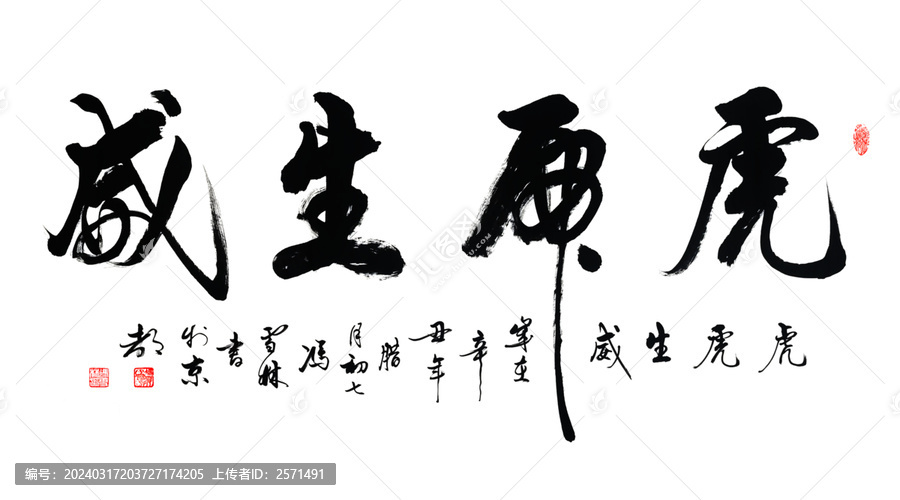 虎虎生威
虎虎生威 岁在辛丑年腊月初七冯雪林书于京都
编号：20240317203727174205 上传者ID：2571491